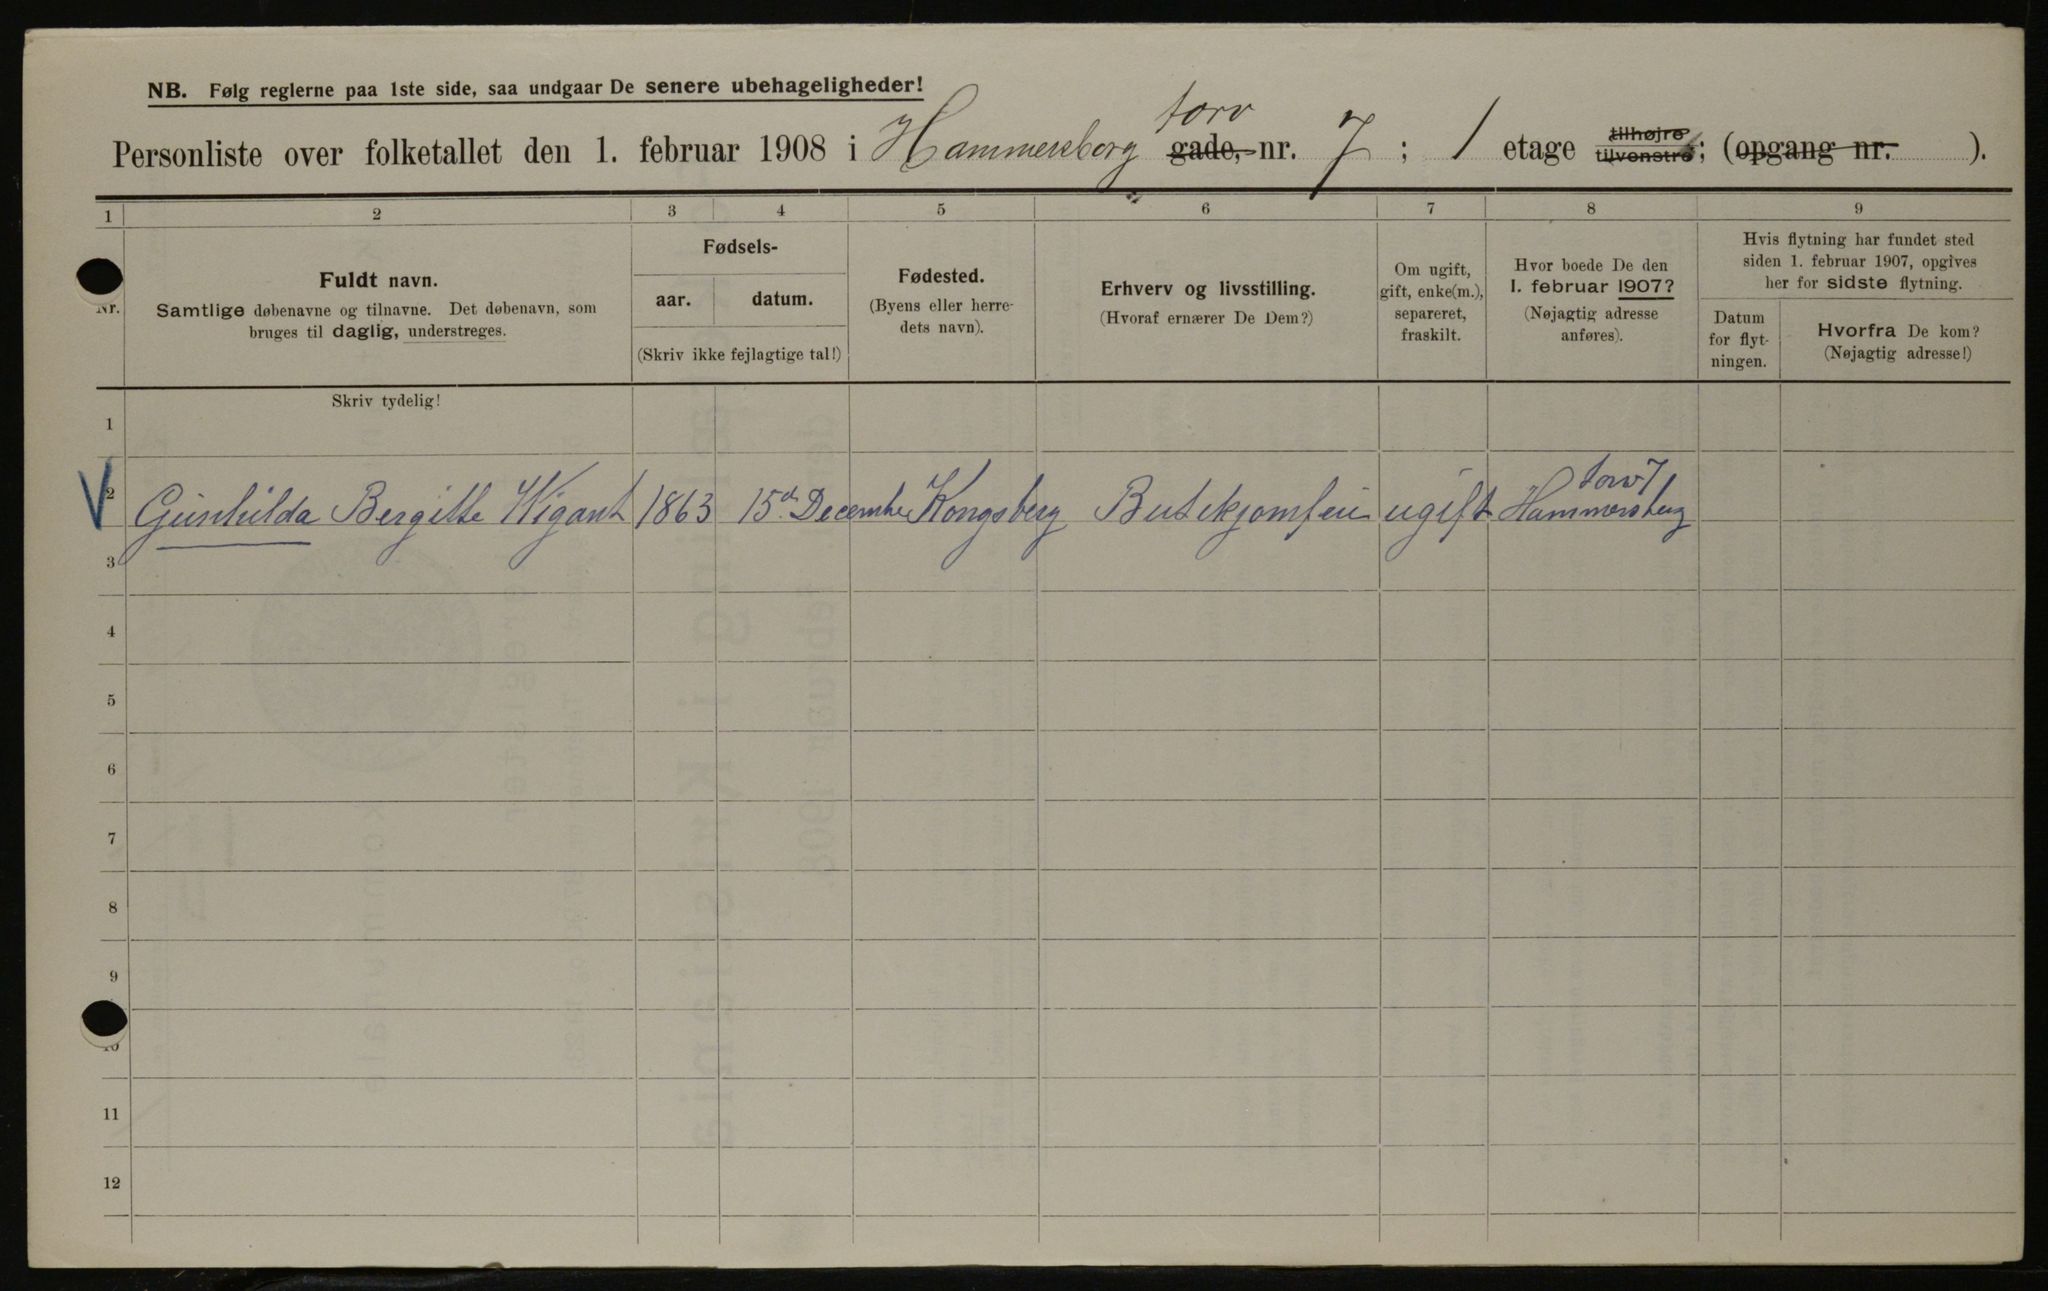 NB. Følg reglerne paa 1ste side, saa undgaar De senere ubehageligheder!
torv
Personliste over folketallet den 1. februar 1908 i Hammersborg gade, nr. 7; 1 etage tilhøjre tilvenstre; (opgang nr. ).
1 2 3 4 5 6 7 8 9
Nr.
Fuldt navn.
Samtlige døbenavne og tilnavne. Det døbenavn, som
bruges til daglig, understreges.
Fødsels-
aar. datum.
(Skriv ikke fejlagtige tal!)
Fødested.
(Byens eller herre-
dets navn).
Erhverv og livsstilling.
(Hvoraf ernærer De Dem?)
Om ugift,
gift, enke(m.),
separeret,
fraskilt.
Hvor boede De den
1. februar 1907?
(Nøjagtig adresse
anføres).
Hvis flytning har fundet sted
siden 1. februar 1907, opgives
her for sidste flytning.
Datum
for flyt-
ningen.
Hvorfra De kom?
(Nøjagtig adresse!)
Skriv tydelig!
1
torv 7
V 2 Gunhilda Bergitte Wigant 1863 15de Decembe Kongsberg Butikjomfru ugift Hammersberg
3
4
5
6
7
8
9
10
11
12